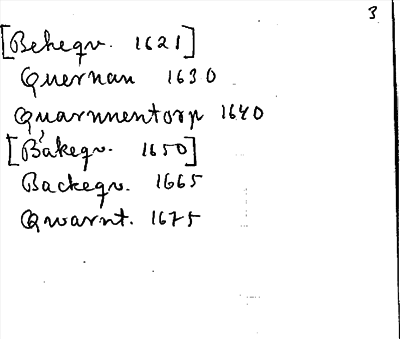 3
[Beheqv. 1621]
Quernan 1630
Quarnnentorp 1640
[Båkeqv. 1650]
Backeqv. 1665
Qwarnt. 1675